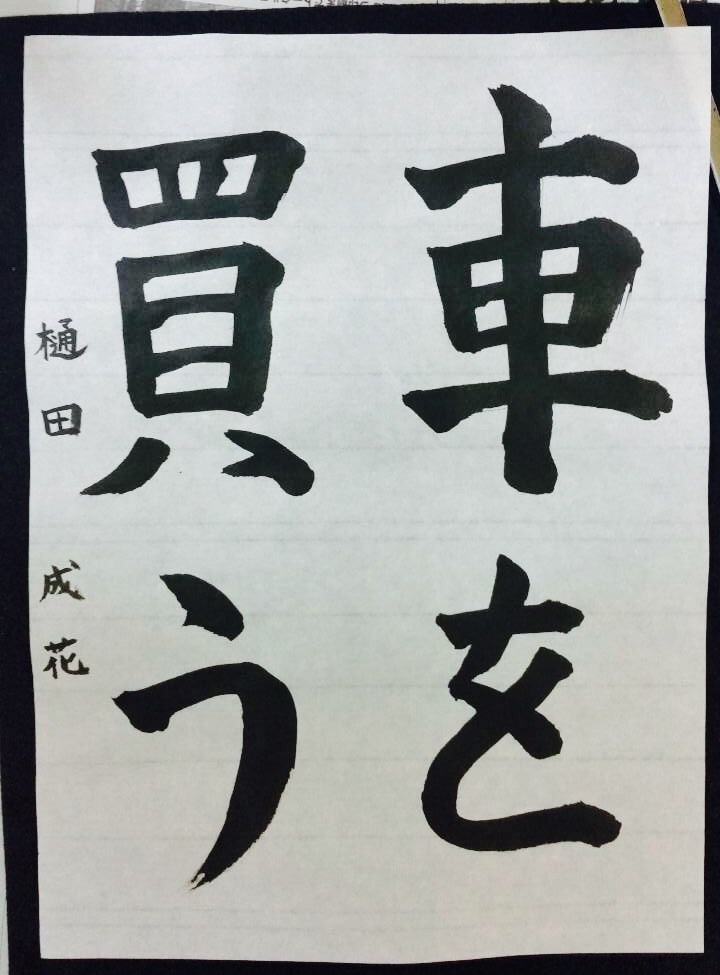 車を
買う
樋田 成花